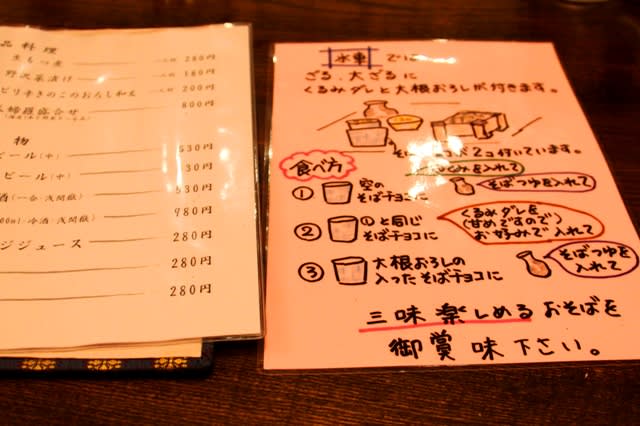 品料理
生もつ煮 280円
野沢菜漬け 180円
ピリ辛きのこのおろし和え 200円
盛合せ 800円
物
ビール(中) 530円
ビール(中) 30円
酒(一合・浅間嶽) 530円
冷酒・浅間嶽) 980円
ジジュース 280円
280円
280円
水車では
ざる、大ざるに
くるみダレと大根おろしが付きます。
そばチョコが2コ付いています。
食べ方
① 空の
そばチョコに
そばつゆを入れて
② ①と同じ
そばチョコに
くるみダレを
(甘めですので)
お好みで入れて
③ 大根おろしの
入ったそばチョコに
そばつゆを
入れて
三味楽しめるおそばを
御賞味下さい。